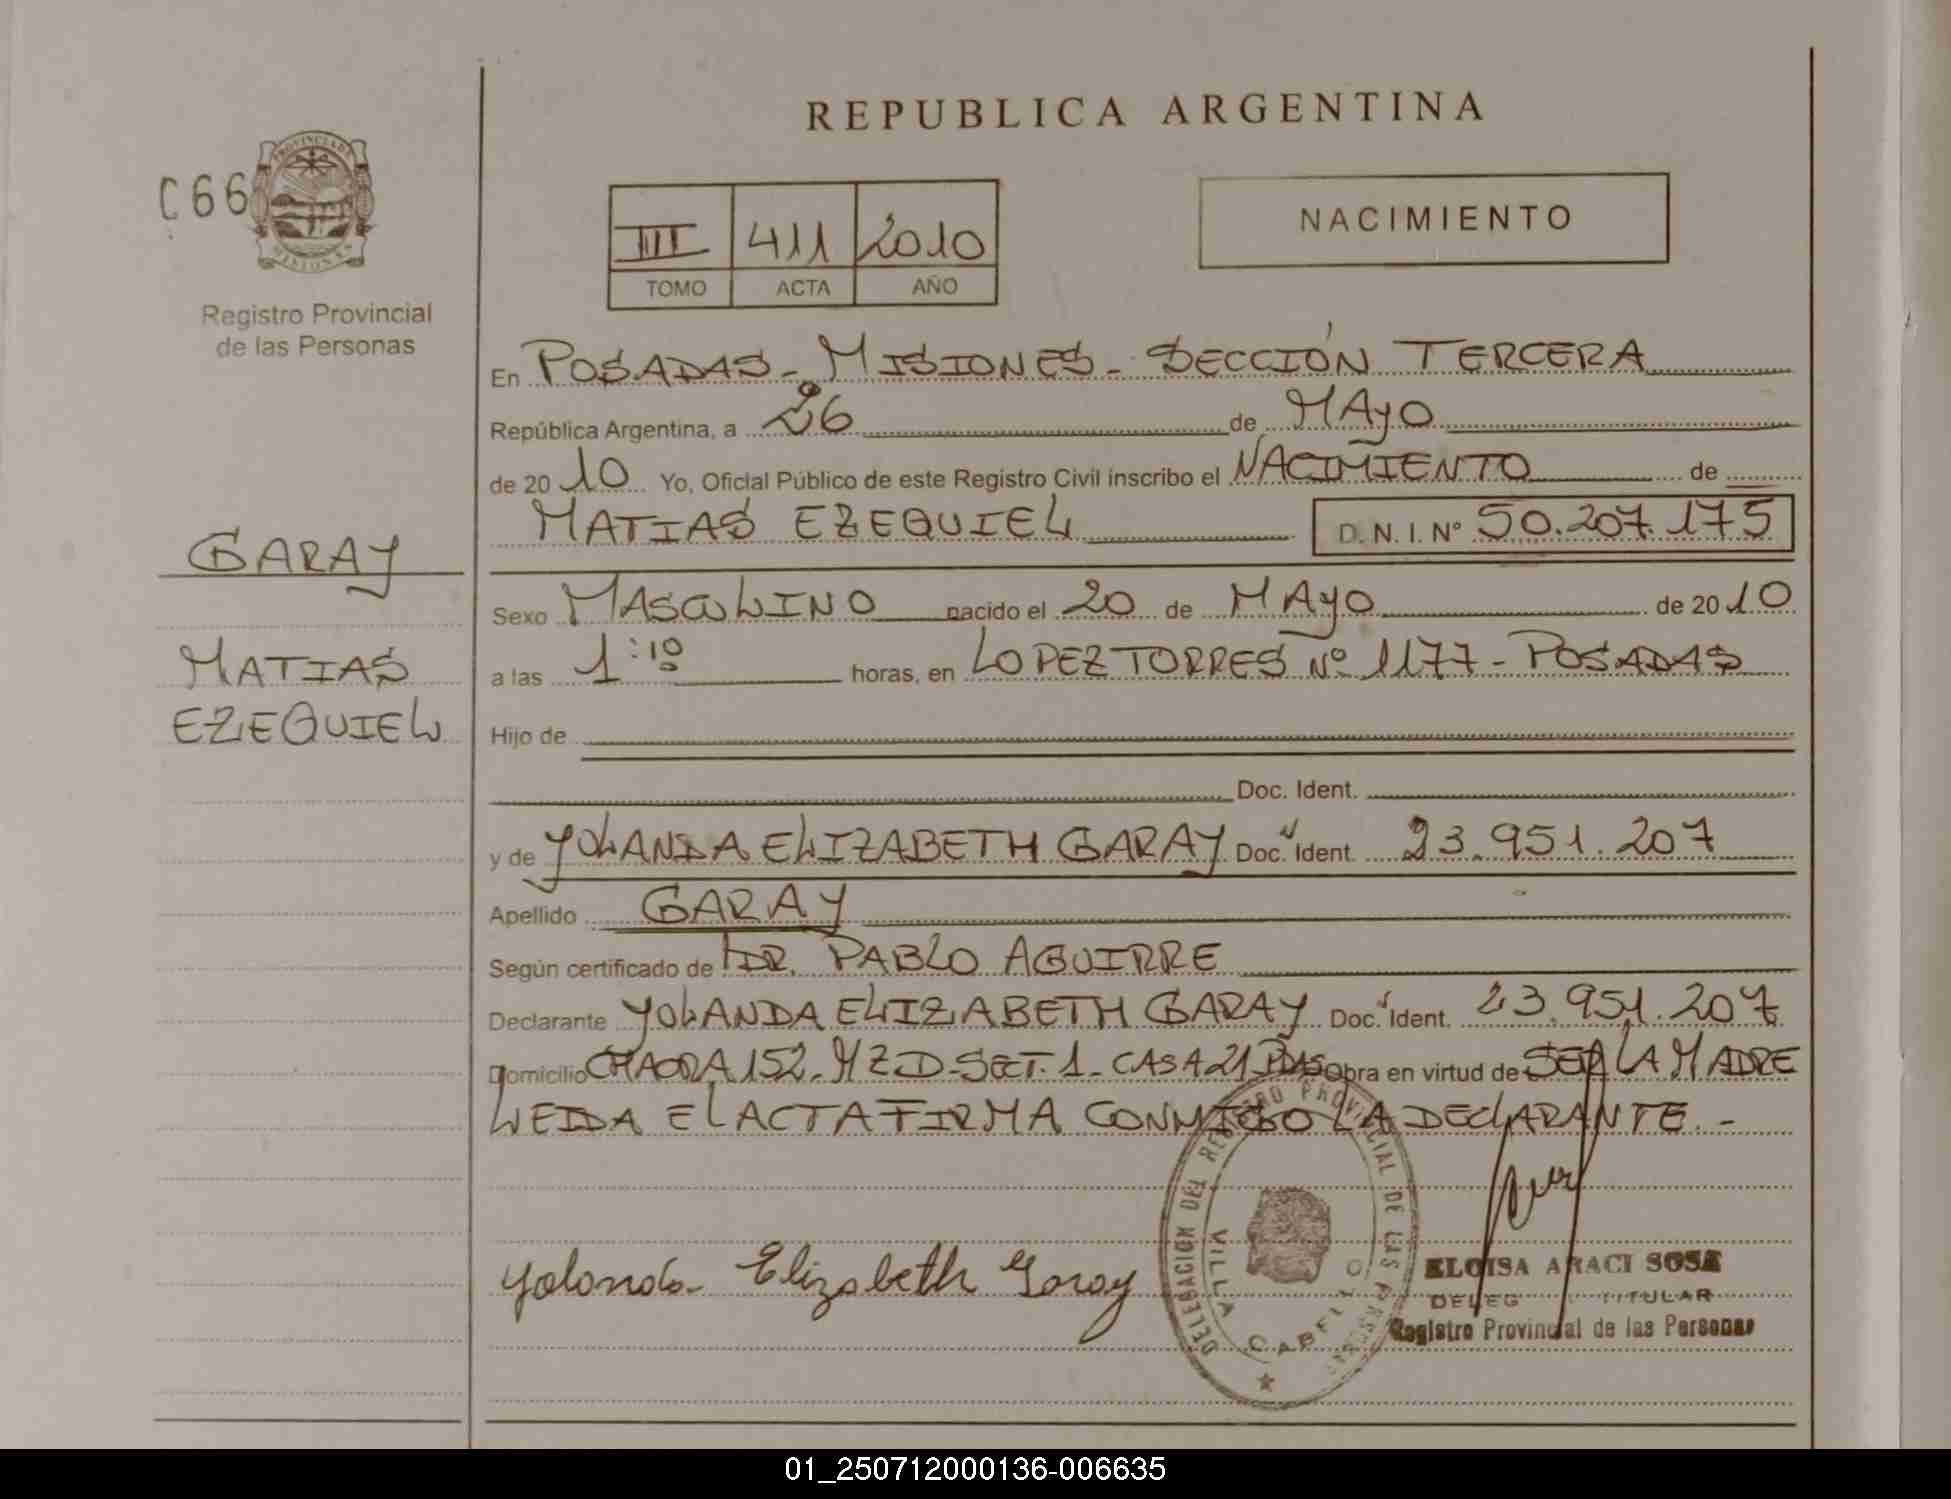 REPUBLICA ARGENTINA
C66
PROVINCIA DE
MISIONES
Registro Provincial
de las Personas
III 411 2010
TOMO ACTA AÑO
NACIMIENTO
En POSADAS - MISIONES - SECCIÓN TERCERA
República Argentina, a 26 de MAYO
de 20 10 Yo, Oficial Público de este Registro Civil inscribo el NACIMIENTO de
MATIAS EZEQUIEL D. N. I. Nº 50.207.175
GARAY
MATIAS
EZEQUIEL
Sexo MASCULINO nacido el 20 de MAYO de 20 10
a las 1:10 horas, en LOPEZ TORRES Nº 1177 - POSADAS
Hijo de
Doc. Ident.
y de YOLANDA ELIZABETH GARAY Doc. Ident. 23.951.207
Apellido GARAY
Según certificado de DR. PABLO AGUIRRE
Declarante YOLANDA ELIZABETH GARAY Doc. Ident. 23.951.207
Domicilio CHACRA 152 - MZ D - SET. 1 - CASA 21 PDAS Obra en virtud de SER LA MADRE
LEIDA EL ACTA FIRMA CONMIGO LA DECLARANTE. -
Yolanda Elizabeth Garay
DELEGACION DEL REGISTRO PROVINCIAL DE LAS PERSONAS
VILLA CABELLO
ELOISA ARACI SOSA
DELEG TITULAR
Registro Provincial de las Personas
01_250712000136-006635